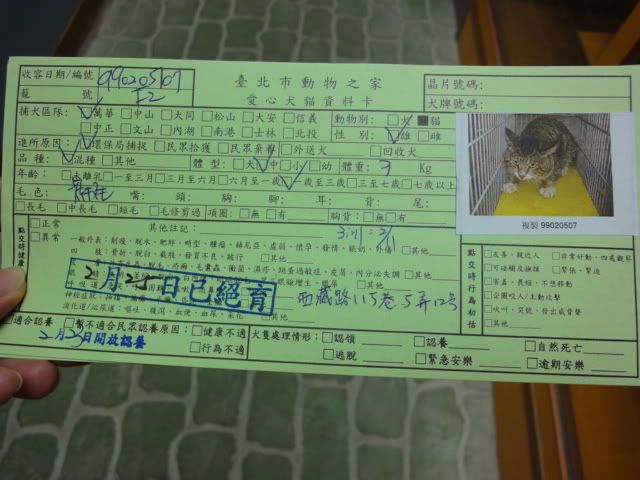 收容日期/編號 99020507
臺北市動物之家
愛心犬貓資料卡
晶片號碼:
犬牌號碼:
籠 號 F2
捕犬區隊: 萬華 中山 大同 松山 大安 信義
動物別: 犬 貓
中正 文山 內湖 南港 士林 北投
性 別: 雄 雌
進所原因: 環保局捕捉 民眾拾獲 民眾棄養 外送犬 回收犬
品 種: 混種 其他
體 型: 大 中 小 幼
體重: 3 Kg
年齡: 未離乳 一至三月 三至六月 六月至一歲 一歲至三歲 三至七歲 七歲以上
毛 色: 嘴: 頭: 胸: 腳: 耳: 背: 尾:
長毛 中長毛 短毛 毛修剪過
項圈: 無 有
胸背: 無 有
複製 99020507
點交時健康
正常
異常
其他註記:
一般外表: 削瘦、脫水、肥胖、畸型、腫瘤、赫尼亞、虛弱、懷孕、發情、眼奶、外傷 其他
四 肢: 骨折、脫臼、截肢、發育不良、跛行 其他
其他
2月25日已絕育
西藏路115巷5弄12號
消化道/泌尿道: 嘔吐、腹瀉、血便、血尿、血尿 其他
點交時行為初估
友善、親近人
非常好動、四處觀察
可碰觸及撫摸
緊張、緊迫
害羞、畏縮、不想移動
企圖咬人/主動攻擊
吠叫、咒號、發出威脅聲
其他
適合認養
暫不適合民眾認養原因: 健康不適
行為不適
2月23日開放認養
犬隻處理情形: 認領 認養 自然死亡
逃脫 緊急安樂 逾期安樂